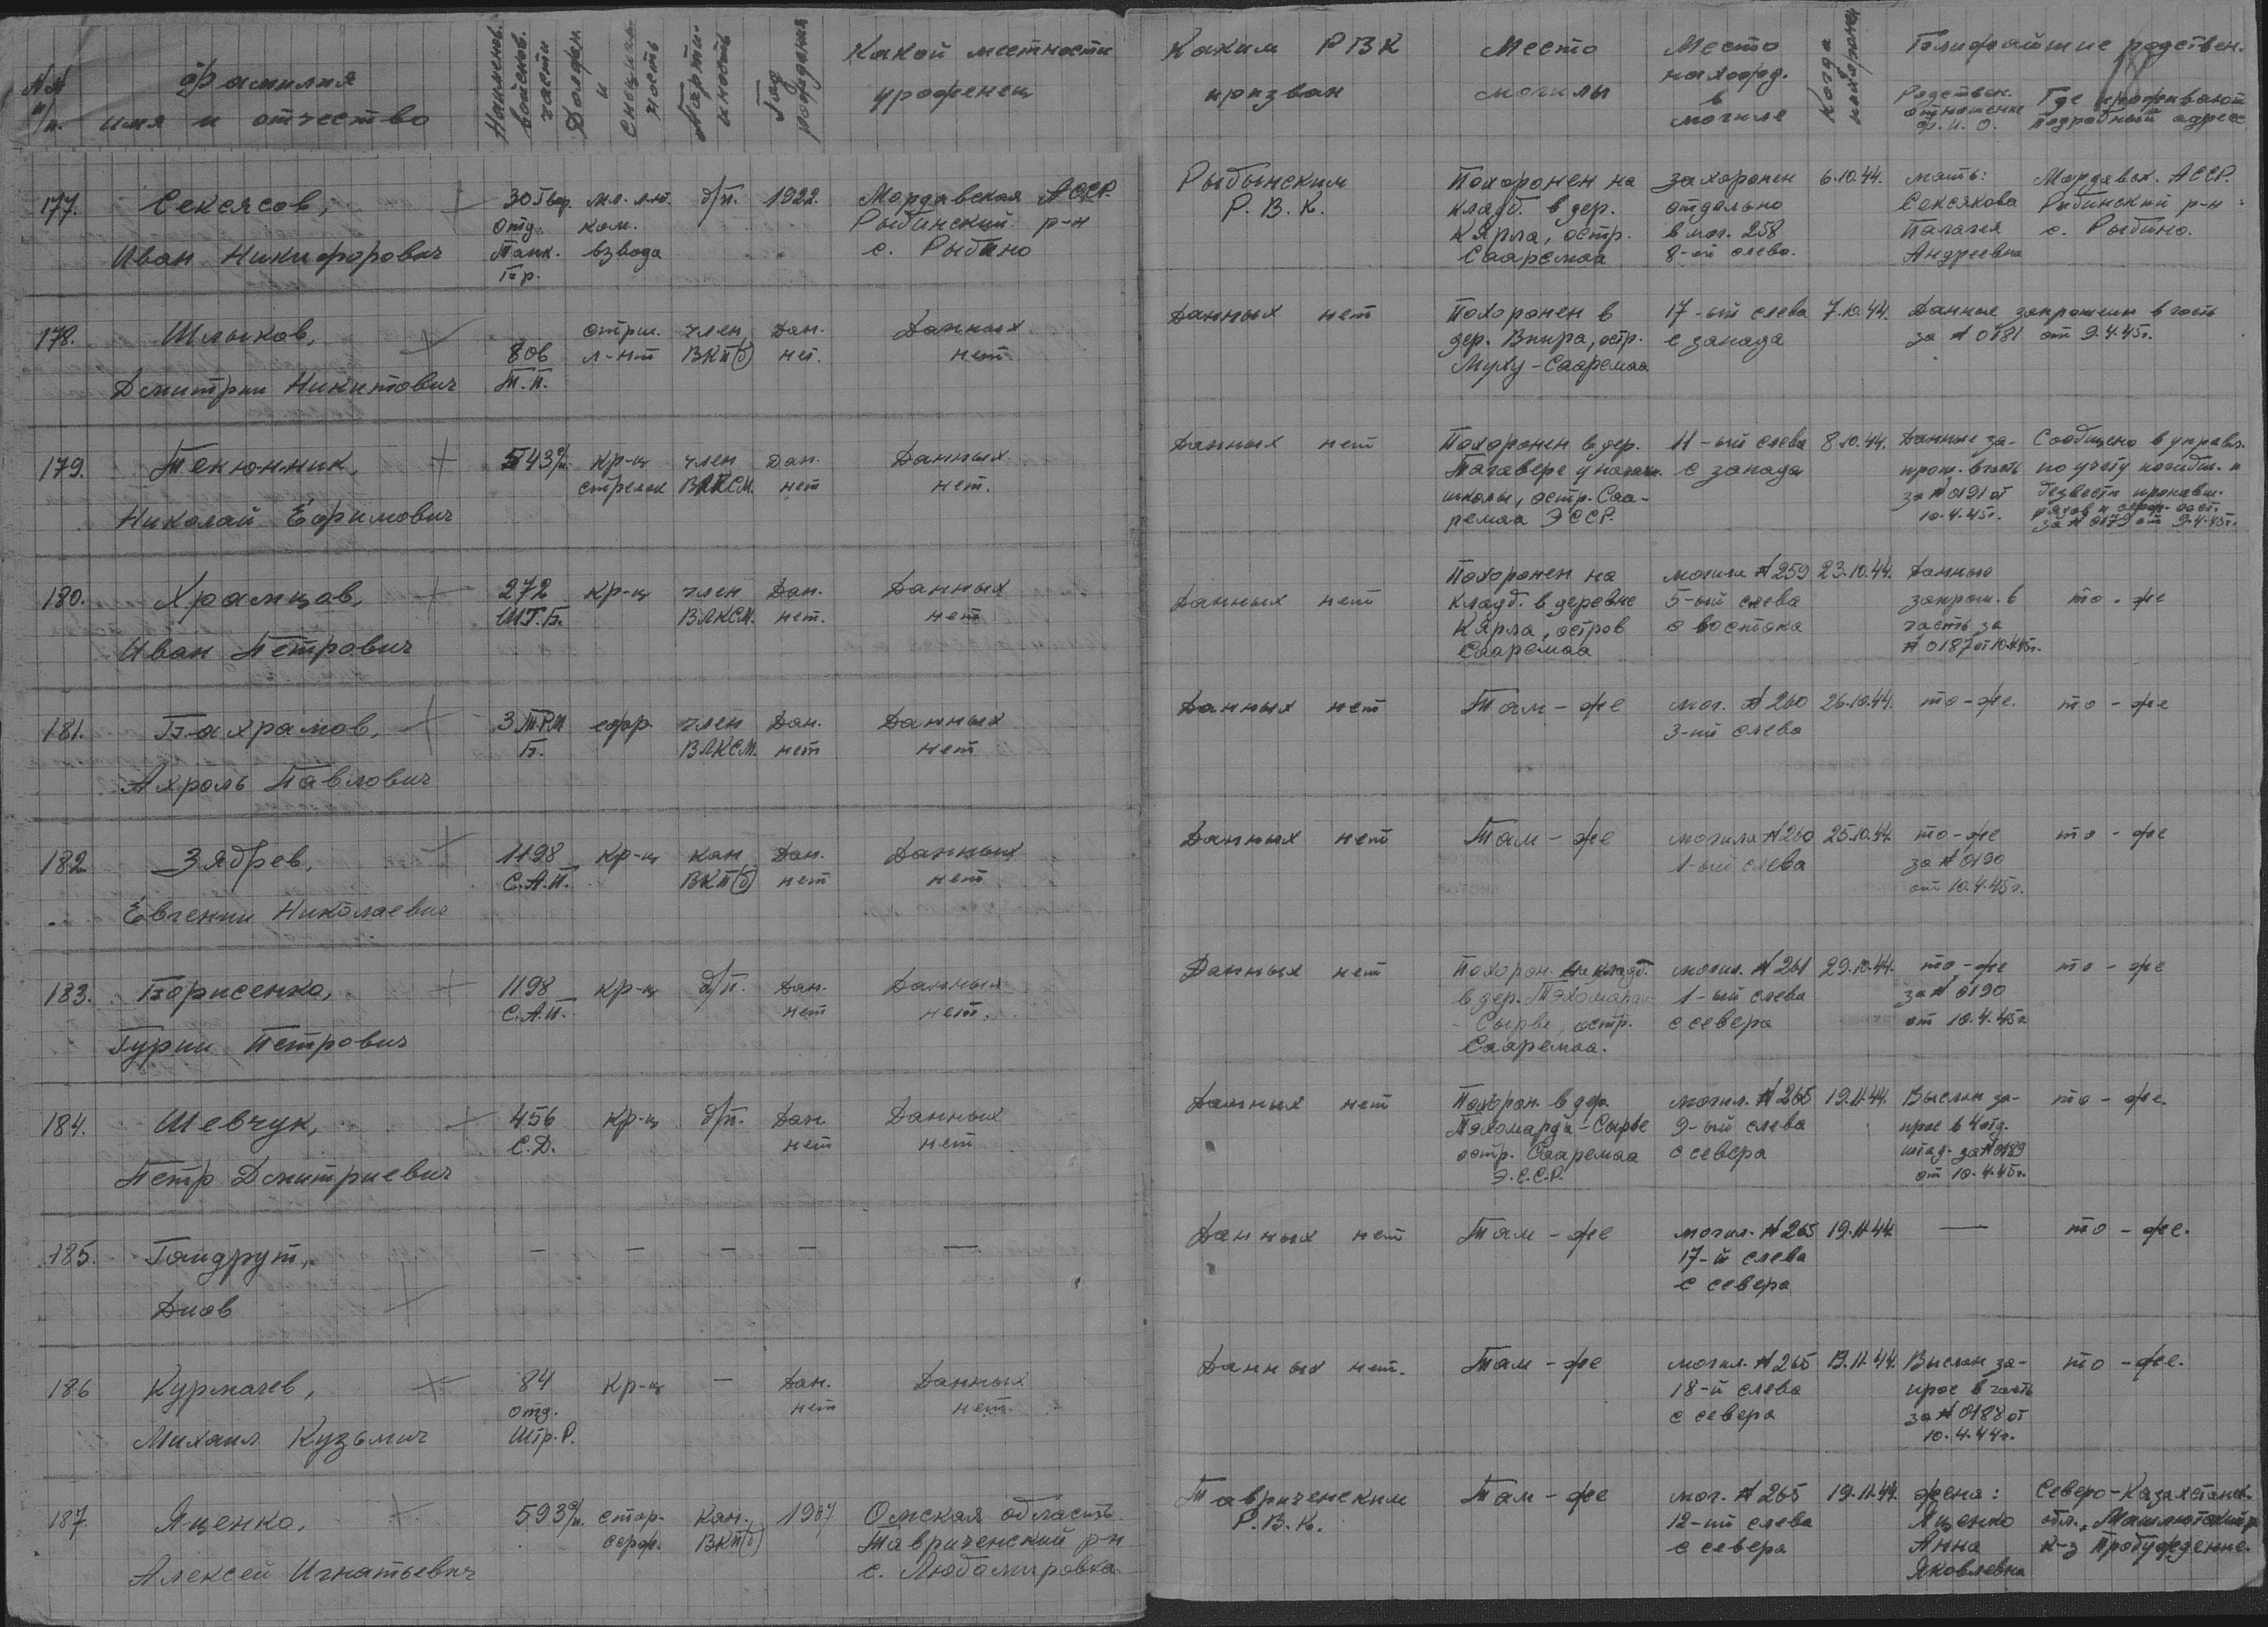 №№ п/п.
Фамилия
имя и отчество
Наименов. войсков. части
Должн. и специальность
Партийность
Год рождения
Какой местности
уроженец
Каким РВК
призван
Место
могилы
Место
наход.
в
могиле
Когда
похоронен
Ближайшие родствен.
Родствен.
отношение
Ф. И. О.
Где проживают
подробный адрес
177. Сексясов,
Иван Никифорович
30 Гвар.
отд.
Танк.
Бр.
мл. л-т.
ком.
взвода
б/п. 1922.
Мордавская АССР.
Рыбинский р-н
с. Рыбино
Рыбынским
Р. В. К.
Похоронен на
кладб. в дер.
Кярла, остр.
Сааремаа
захоронен
отдельно
в мог. 258
8-ой слева.
6.10.44.
мать:
Сексякова
Палагея
Андреевна
Мордавск. АССР.
Рыбинский р-н
с. Рыбино.
178. Шлыков,
Дмитрий Никитович
806
Т.П.
стрш.
л-нт
член
ВКП(б)
Дан.
нет.
Данных
нет
Данных нет
Похоронен в
дер. Виира, остр.
Муху-Сааремаа
17-ый слева
с запада
7.10.44.
Данные запрошены в часть
за № 0181 от 9.4.45г.
179. Текюнник,
Николай Ефимович
543 с/п.
кр-ц
стрелок
член
ВЛКСМ.
Дан.
нет
Данных
нет.
Данных нет
Похоронен в дер.
Тагавере у начал.
школы, остр. Саа-
ремаа ЭССР.
11-ый слева
с запада
8.10.44.
Данные за-
прош. в часть
за № 0191 от
10.4.45г.
Сообщено в управл.
по учету погибш. и
безвести пропавш.
рядов и серж. сост.
за № 0179 от 9.4.45г.
180. Храмцов,
Иван Петрович
272
ШТ.Б.
кр-ц
член
ВЛКСМ.
Дан.
нет.
Данных
нет
Данных нет
Похоронен на
кладб. в деревне
Кярла, остров
Сааремаа
могила № 259
5-ый слева
с востока
23.10.44.
Данные
запрош. в
часть за
№ 0187 от 10.4.45г.
то-же
181. Бахрамов,
Ахроль Павлович
3 ТРМ
Б.
ефр
член
ВЛКСМ.
Дан.
нет
Данных
нет
Данных нет
Там-же
мог. № 260
3-ий слева
26.10.44.
то-же.
то-же
182 Зябрев,
Евгений Николаевич
1198
С.А.П.
кр-ц
кан
ВКП(б)
Дан.
нет
Данных
нет
Данных нет
Там-же
могила № 260
1-ый слева
25.10.44.
то-же
за № 0190
от 10.4.45г.
то-же
183. Борисенко,
Гурий Петрович
1198
С.А.П.
кр-ц
б/п.
Дан.
нет
Данных
нет.
Данных нет
Похорон. на кладб.
в дер.
Сырве, остр.
Сааремаа.
могил. № 261
1-ый слева
с севера
29.10.44.
то-же
за № 0190
от 10.4.45г
то-же
184. Шевчук,
Петр Дмитриевич
456
С.Д.
кр-ц
б/п.
Дан.
нет
Данных
нет
Данных нет
Похорон. в дер.
Тэхомарди-Сырве
остр. Сааремаа
Э.С.С.Р.
могил. № 265
9-ый слева
с севера
19.11.44.
Выслан за-
прос в 4 отд.
штад. за № 0189
от 10.4.45г.
то-же.
185. Гандрут,
Диов
— — — — —
Данных нет
Там-же
могил. № 265
17-й слева
с севера
19.11.44.
—
то-же.
186 Курмачев,
Михаил Кузьмич
84
отд.
Штр.Р.
кр-ц
—
Дан.
нет
Данных
нет.
Данных нет.
Там-же
могил. № 265
18-й слева
с севера
19.11.44.
Выслан за-
прос в часть
за № 0188 от
10.4.44г.
то-же.
187. Яценко,
Алексей Игнатьевич
593 с/п.
стар.
серж.
Кан.
ВКП(б)
1907
Омская область
Тавриченский р-н
с. Любомировка
Тавриченским
Р.В.К.
Там-же
мог. № 265
12-ий слева
с севера
19.11.44.
жена:
Яценко
Анна
Яковлевна
Северо-Казахстанск.
обл.,
к-з Пробуждение.